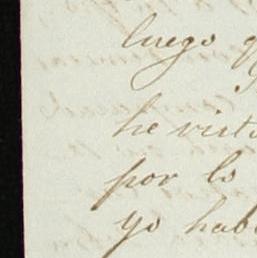 luego q
he visto
por lo
yo hab